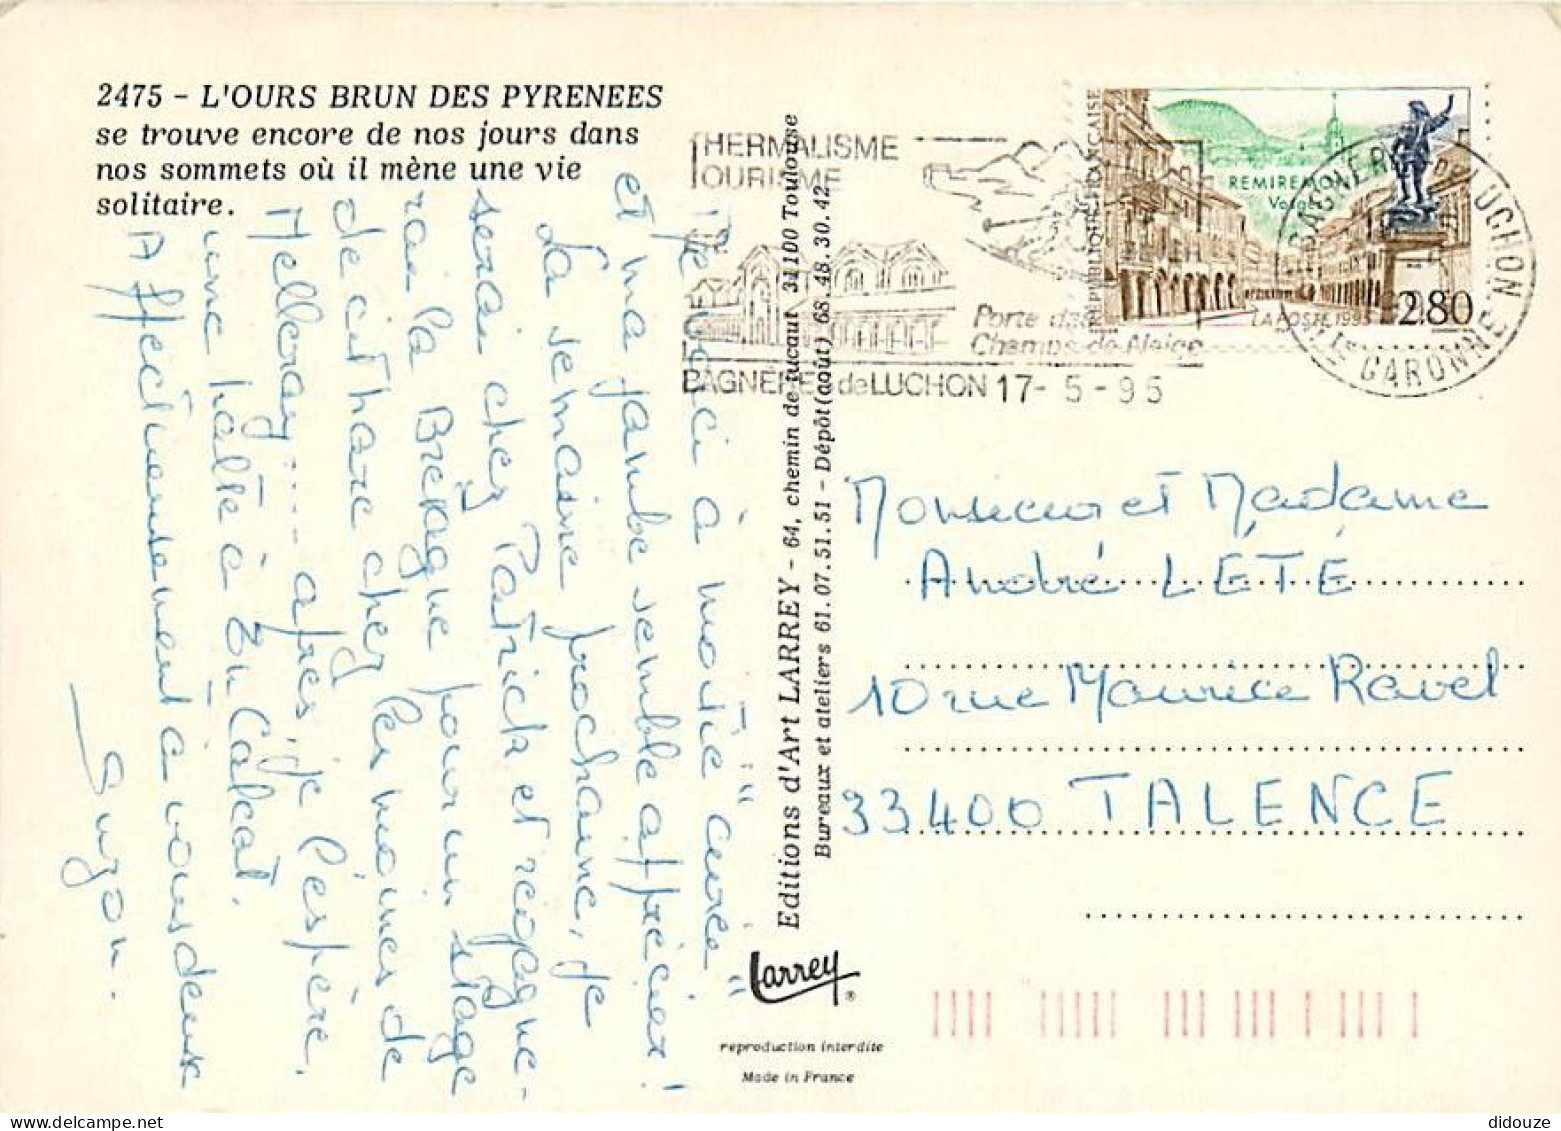 2475 - L'OURS BRUN DES PYRENEES
se trouve encore de nos jours dans
nos sommets où il mène une vie
solitaire.
Me voici à moitié "curée"
et ma jambe semble apprécier !
La semaine prochaine, je
serai chez Patrick et rejoigne-
rai la Bretagne pour un stage
de cithare chez les moines de
Melleray.... après, je l'espère,
une halte à En Calcat.
Affectueusement à vous deux
Suzon.
Editions d'Art LARREY - 64, chemin de Tucaut 31100 Toulouse
Bureaux et ateliers 61.07.51.51 - Dépôt (août) 68.48.30.42
Larrey
®
reproduction interdite
Made in France
THERMALISME
TOURISME
Porte des
Champs de Neige
BAGNÈRES de LUCHON 17- 5 - 95
REPUBLIQUE FRANÇAISE
REMIREMONT
Vosges
LA POSTE 1995
2.80
BAGNERES DE LUCHON
Hte GARONNE
Monsieur et Madame
André LÉTÉ
10 rue Maurice Ravel
33400 TALENCE
didouze